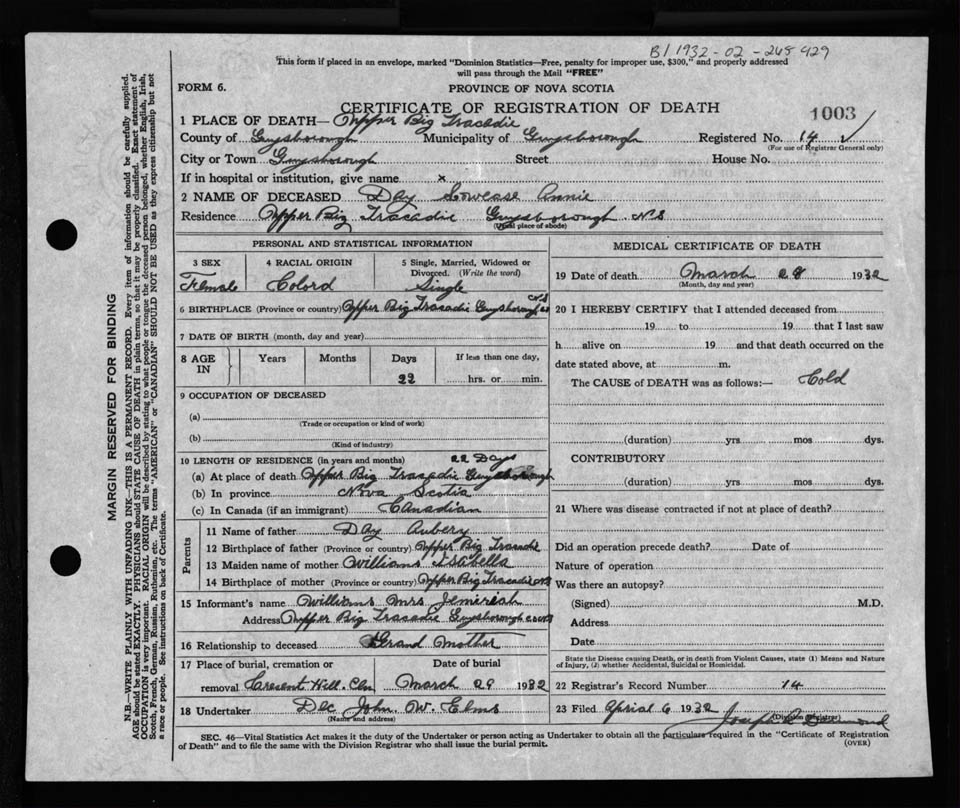 B1 1932-02-268 429
This form if placed in an envelope, marked "Dominion Statistics—Free, penalty for improper use, $300," and properly addressed
will pass through the Mail "FREE"
FORM 6. PROVINCE OF NOVA SCOTIA
CERTIFICATE OF REGISTRATION OF DEATH 1003
1 PLACE OF DEATH— Upper Big Tracadie
County of Guysborough Municipality of Guysborough Registered No. 14
(For use of Registrar General only)
City or Town Guysborough Street House No.
If in hospital or institution, give name x
2 NAME OF DECEASED Day Annie
Residence Upper Big Tracadie Guysborough N.S
(Usual place of abode)
PERSONAL AND STATISTICAL INFORMATION
3 SEX 4 RACIAL ORIGIN 5 Single, Married, Widowed or
Divorced. (Write the word)
Female Colord Single
6 BIRTHPLACE (Province or country) Upper Big Tracadie Guysborough
7 DATE OF BIRTH (month, day and year)
8 AGE IN Years Months Days If less than one day,
22 hrs. or min.
9 OCCUPATION OF DECEASED
(a)
(Trade or occupation or kind of work)
(b)
(Kind of industry)
10 LENGTH OF RESIDENCE (in years and months) 22 Days
(a) At place of death Upper Big Tracadie Guysborough
(b) In province Nova Scotia
(c) In Canada (if an immigrant) Canadian
Parents
11 Name of father Day Aubery
12 Birthplace of father (Province or country) Upper Big Tracadie
13 Maiden name of mother Williams Isabella
14 Birthplace of mother (Province or country) Upper Big Tracadie NS
15 Informant's name Williams Mrs Jemeriah
Address Upper Big Tracadie Guysborough
16 Relationship to deceased Grand Mother
17 Place of burial, cremation or Date of burial
removal Cresent Hill. March 29 1932
18 Undertaker Dec John W. Elms
(Name and address)
MEDICAL CERTIFICATE OF DEATH
19 Date of death March 28 1932
(Month, day and year)
20 I HEREBY CERTIFY that I attended deceased from
19 to 19 that I last saw
h alive on 19 and that death occurred on the
date stated above, at m.
The CAUSE of DEATH was as follows:— Cold
(duration) yrs mos dys.
CONTRIBUTORY
(duration) yrs. mos dys.
21 Where was disease contracted if not at place of death?
Did an operation precede death? Date of
Nature of operation
Was there an autopsy?
(Signed) M.D.
Address
Date
State the Disease causing Death, or in death from Violent Causes, state (1) Means and Nature
of Injury, (2) whether Accidental, Suicidal or Homicidal.
22 Registrar's Record Number 14
23 Filed April 6 1932 Joseph
(Division Registrar)
SEC. 46—Vital Statistics Act makes it the duty of the Undertaker or person acting as Undertaker to obtain all the particulars required in the "Certificate of Registration
of Death" and to file the same with the Division Registrar who shall issue the burial permit. (OVER)
MARGIN RESERVED FOR BINDING
N.B.—WRITE PLAINLY WITH UNFADING INK—THIS IS A PERMANENT RECORD. Every item of information should be carefully supplied.
AGE should be stated EXACTLY. PHYSICIANS should STATE CAUSE OF DEATH in plain terms, so that it may be properly classified. Exact statement of
OCCUPATION is very important. RACIAL ORIGIN will be described by stating to what people or tongue the deceased person belonged, whether English, Irish,
Scotch, French, German, Russian, Ruthenian, etc. The terms "AMERICAN" or "CANADIAN" SHOULD NOT BE USED as they express citizenship but not
a race or people. See instructions on back of Certificate.